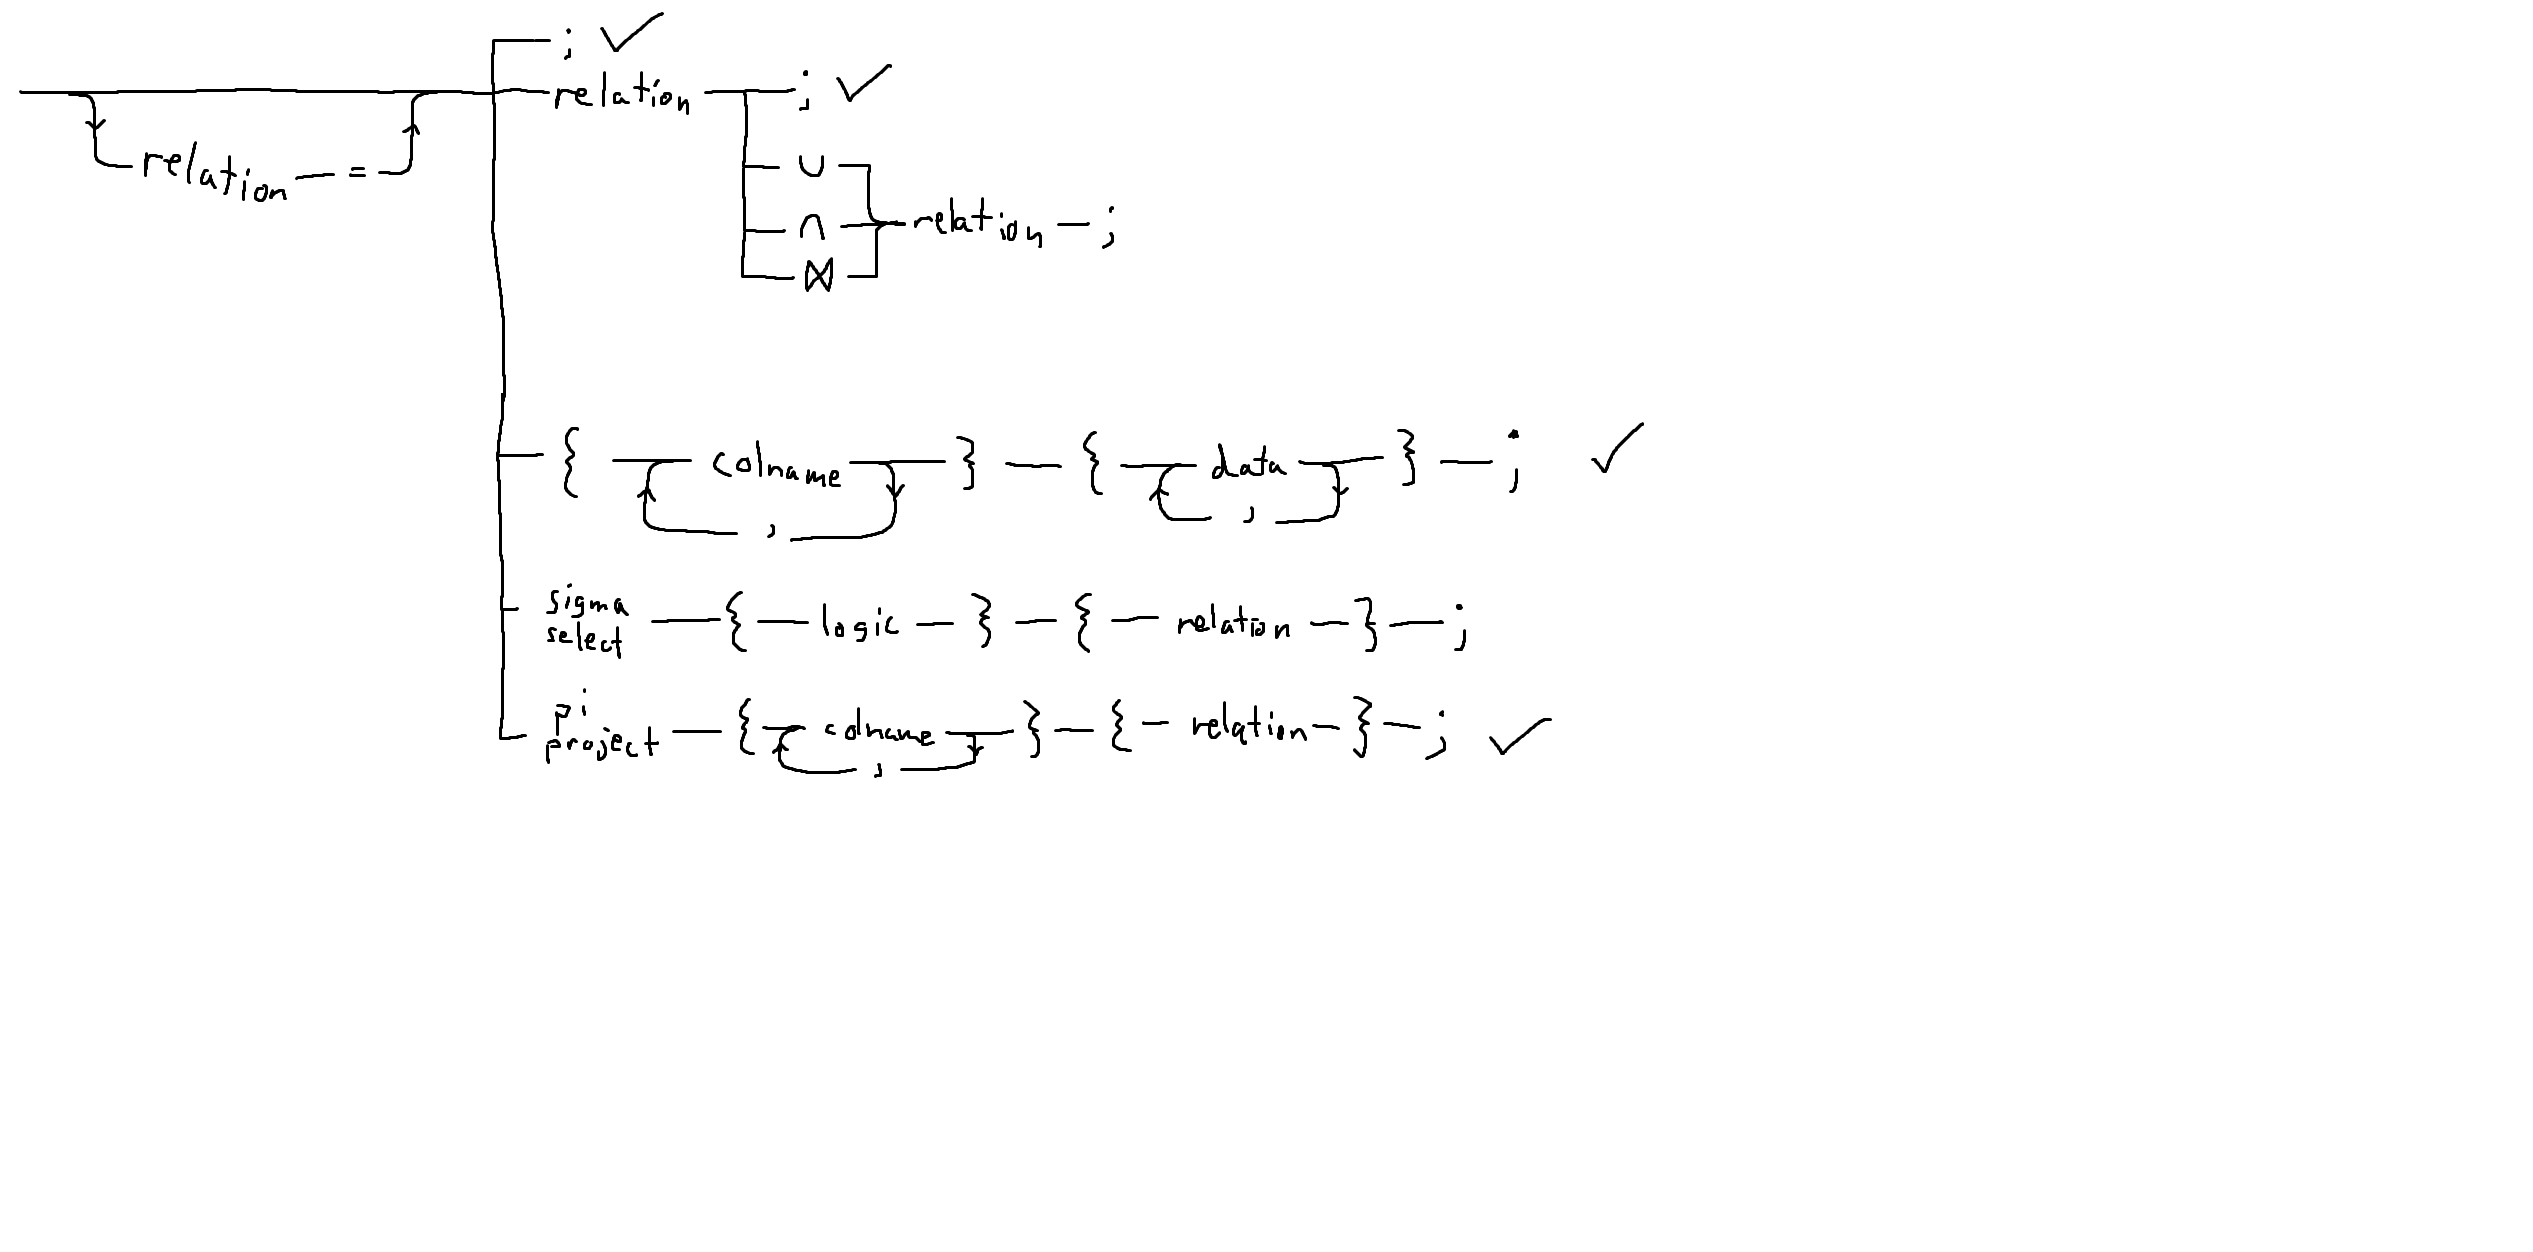 ; ✓
relation ; ✓
relation =
∪
∩ relation ;
⋈
{ colname } { data } ; ✓
, ,
sigma
select { logic } { relation } ;
pi
project { colname } { relation } ; ✓
,